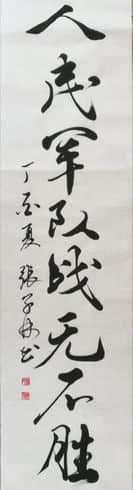 人民军队战无不胜
丁酉夏 张子舟书